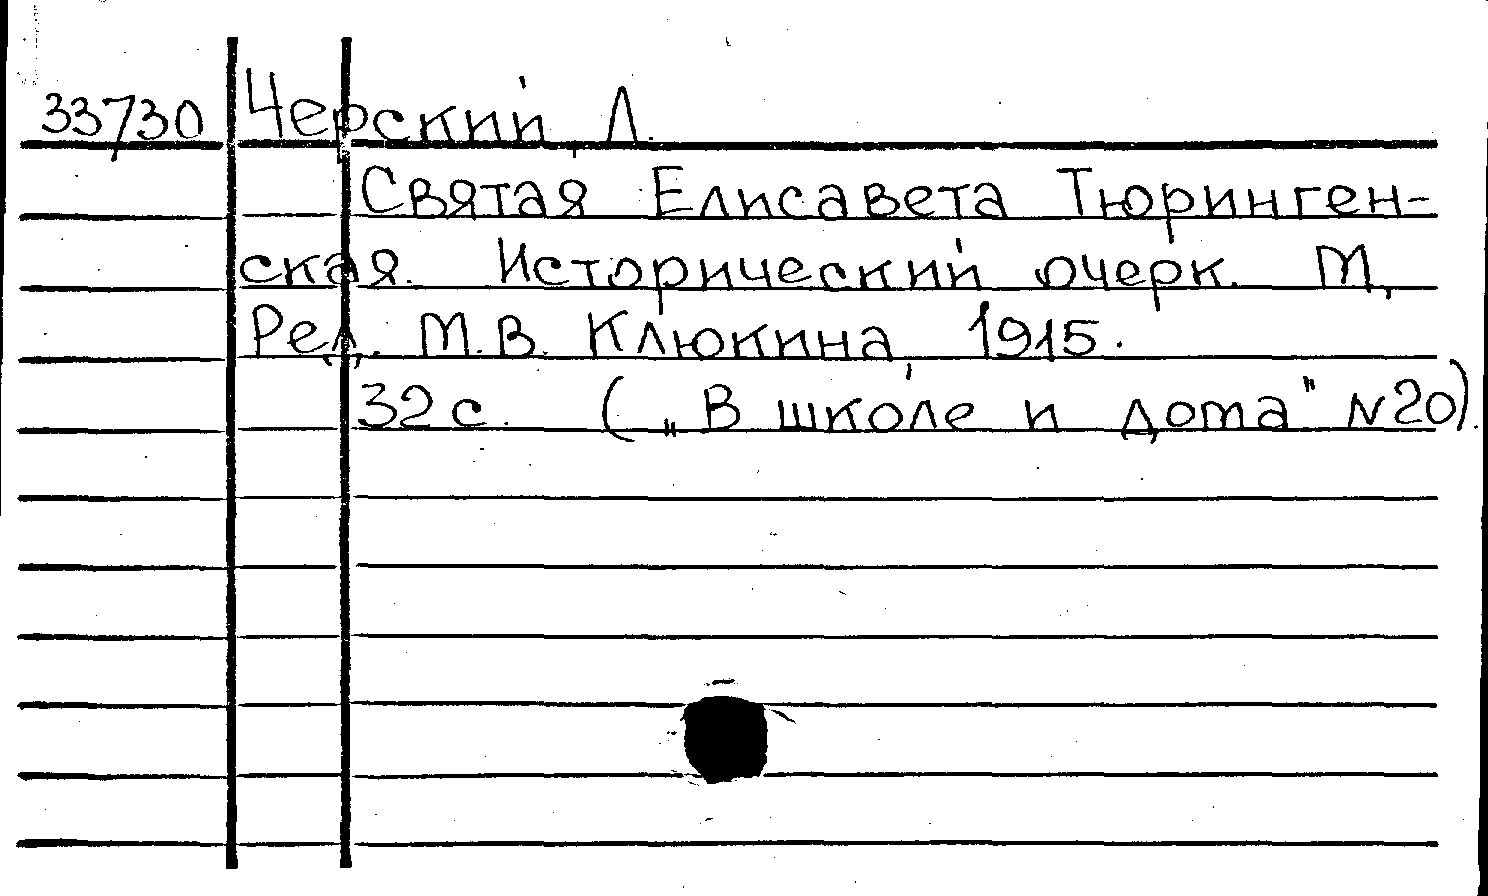 33730 Черский, Л.
Святая Елисавета Тюринген-
ская. Исторический очерк. М,
Ред. М.В. Клюкина, 1915.
32 с. („В школе и дома" N20).